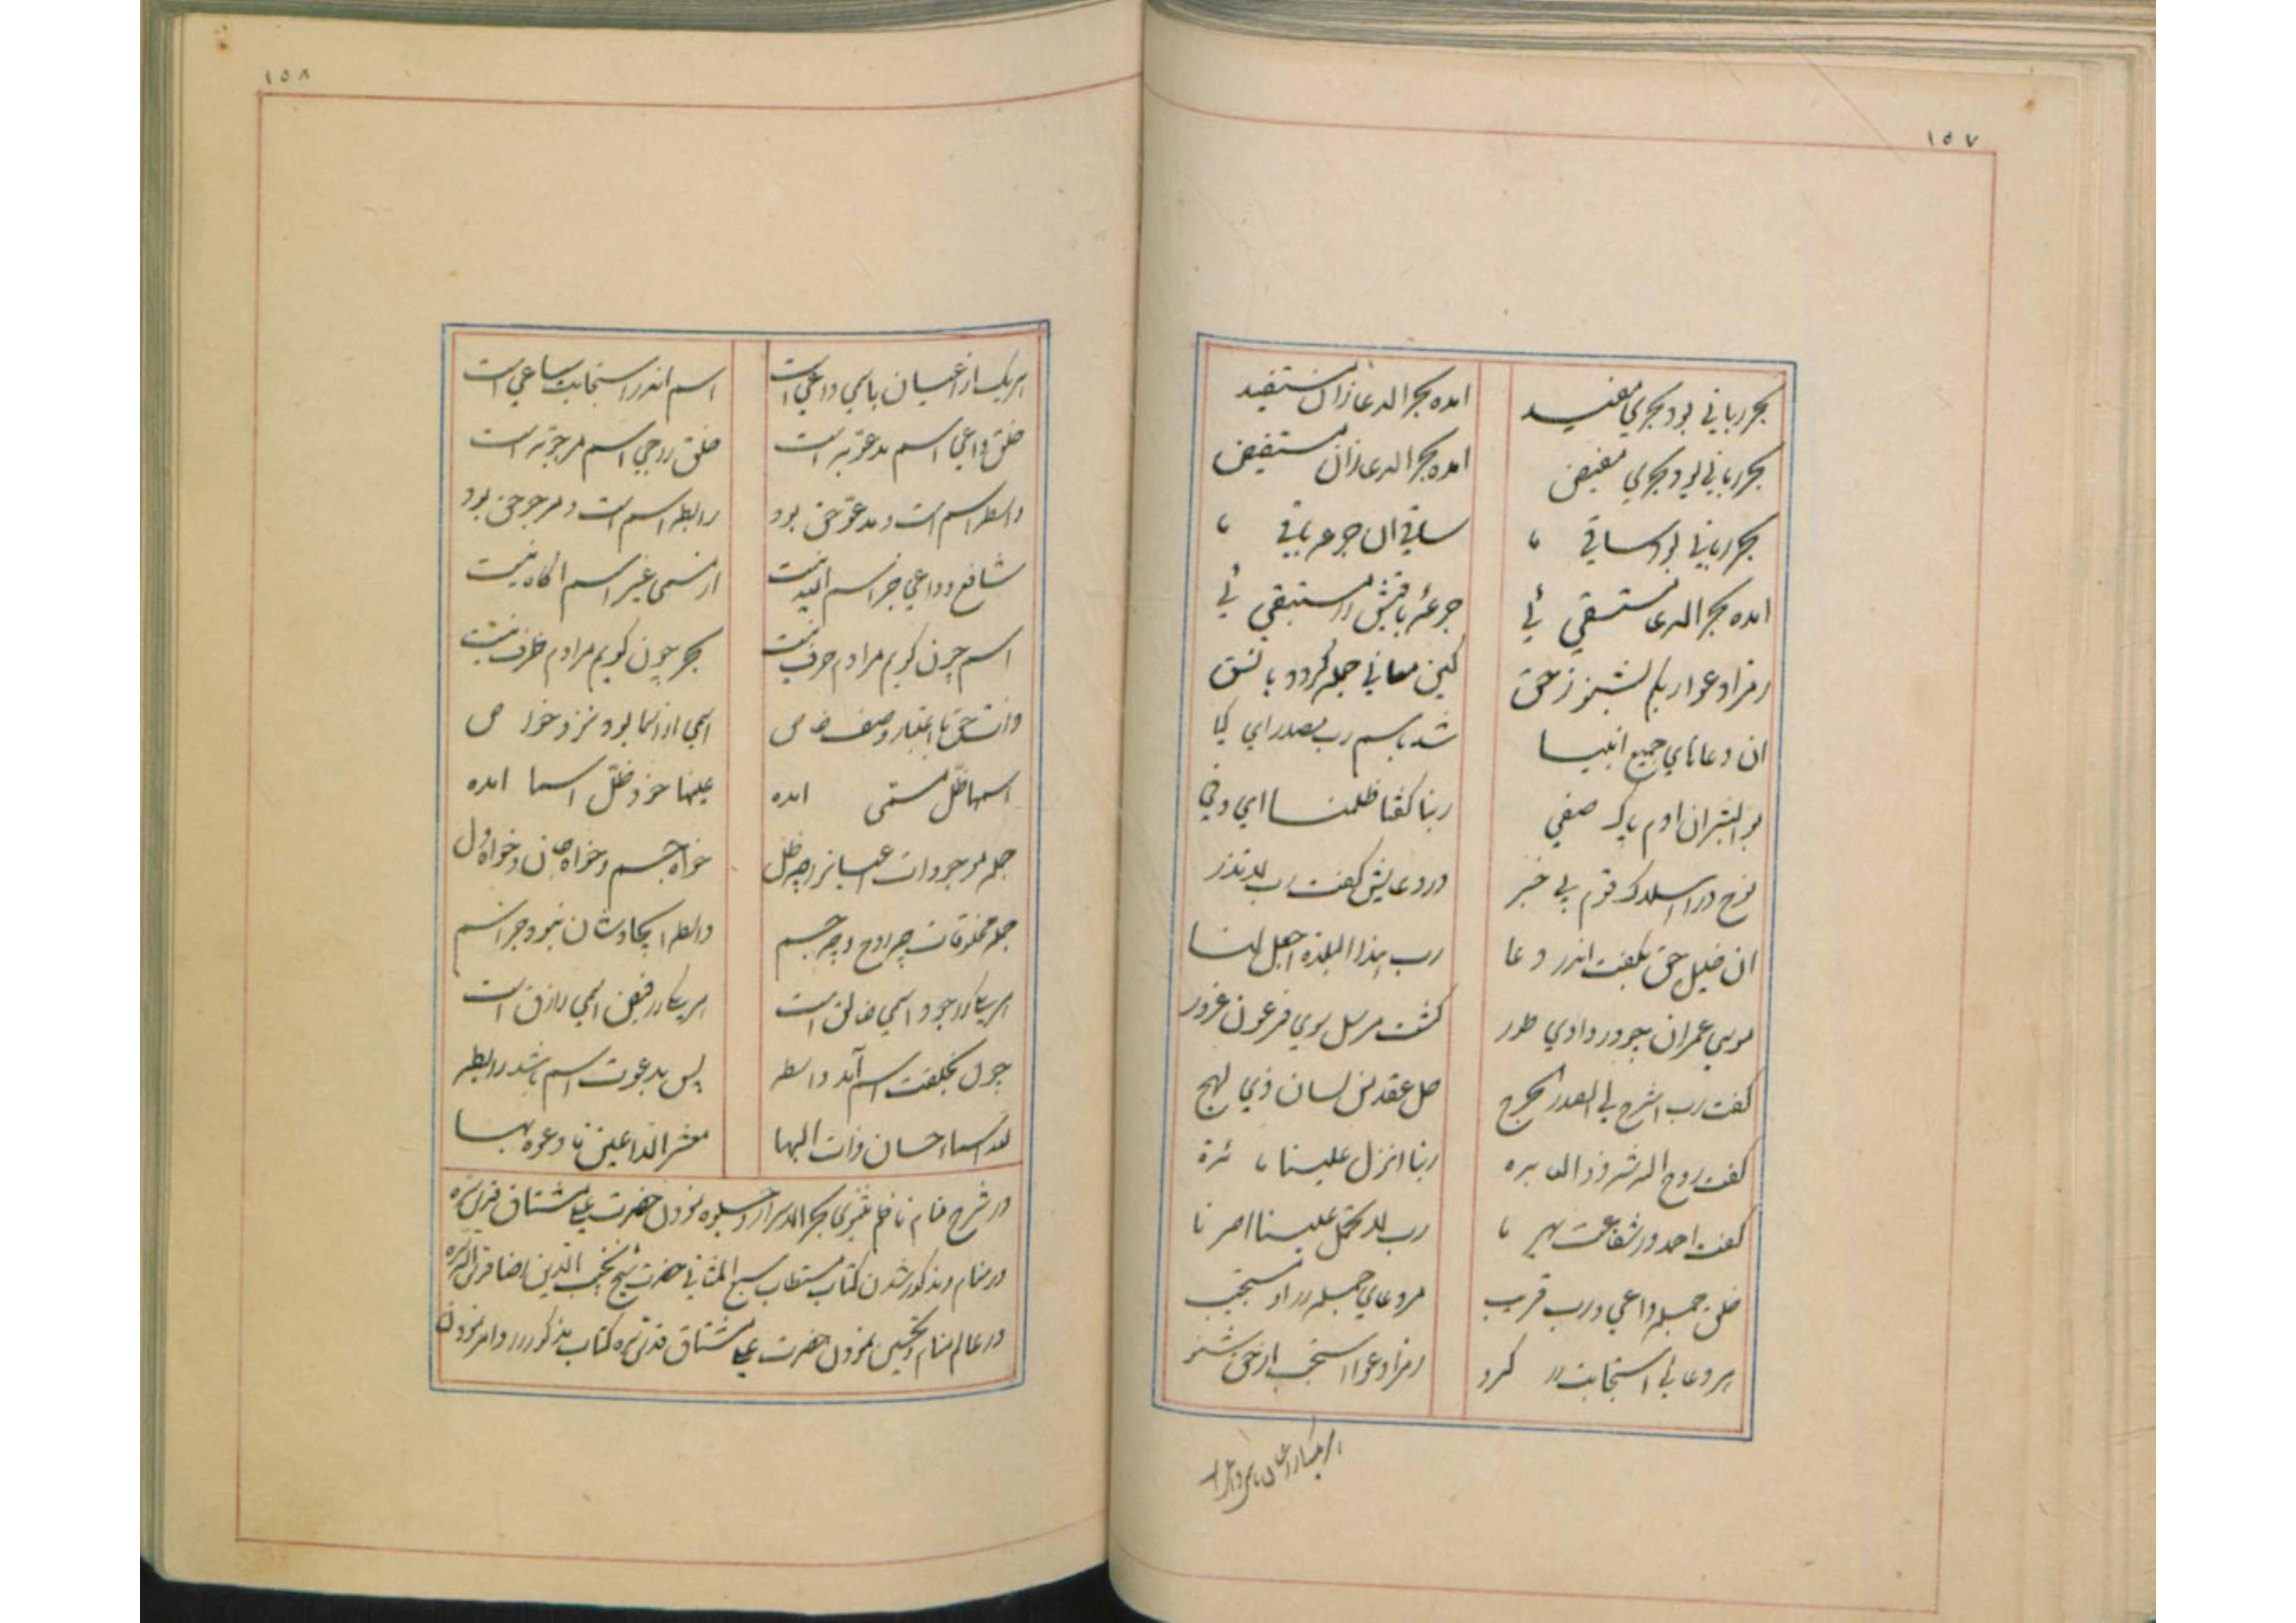 ۱۵۷
بحر ربانی بود بحری مفید امده بحر الدعا زان مستفید
بحر ربانی بود بحری مفیض امده بحر الدعا زان مستفیض
بحر ربانی بود ساقی ما ساقی ان جرعه باقی ما
امده بحر الدعا مستسقی ئی جرعه باقیش را مستبقی ئی
رمز ادعوا ربکم بشنو ز حق کین معانی جمله گردد با نسق
ان دعاهای جمیع انبیا شد باسم رب مصدر ای کیا
بو البشر ان ادم پاک صفی ربنا گفتا ظلمنا ای وفی
نوح در اهلاک قوم بی خبر در دعایش گفت رب لا تذر
ان خلیل حق بگفت اندر دعا رب هذا البلده اجعل لنا
موسی عمران چو در وادی طور گشت مرسل سوی فرعون غرور
گفت رب اشرح لی الصدر الحرج حل عقد من لسان ذی لهج
گفت روح الله ربنا انزل علینا مائدة
گفت احمد در شفاعت بهر ما رب لا تحمل علینا اصرنا
خلق جمله داعی و رب قریب مر دعای جمله را او مستجیب
هر دعا بی استجابت رد نکرد رمز ادعوا استجب از حق شنو
هر یک از اعیان باسمی داعی است
۱۵۸
هر یک از اعیان باسمی داعی است اسم اندر استجابت ساعی است
خلق داعی اسم مدعو به است خلق راجی اسم مرجو به است
واسطه اسم است و مدعو حق بود رابطه اسم است و مرجو حق بود
شافع و داعی جز اسم الله نیست از مسمی غیر اسم اگاه نیست
اسم چون گویم مرادم حرف نیست بحر چون گویم مرادم ظرف نیست
ذات حق با اعتبار وصف خاص اسمی از اسما بود نزد خواص
اسمها ظل مسمی امده عینها خود ظل اسما امده
جمله موجودات عینا نرا چه ظل خواه جسم و خواه جان و خواه دل
جمله مخلوقات چه روح و چه جسم واسطه ایجادشان نبود جز اسم
هر یکی را در وجود اسمی خالق است هر یکی را در فیض اسمی رازق است
چون بخلقت اسم آمد واسطه پس بدعوت اسم باشد رابطه
لله اسماء حسان ذات البها معشر الداعین نادعوه بها
در شرح منام ناظم مثنوی بحر الاسرار و جلوه نمودن حضرت مشتاق علی قدس سره
در منام و مذکور شدن کتاب مستطاب سبع المثانی حضرت شیخ نجیب الدین رضا قدس الله سره
در عالم منام و تحسین نمودن حضرت مشتاق علی قدس سره کتاب مذکور را و امر نمودن